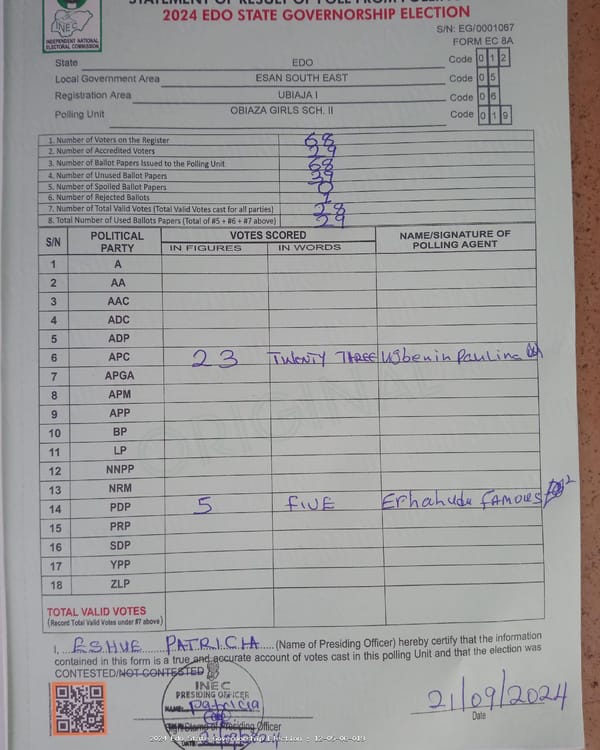 STATEMENT OF RESULT OF POLL FROM POLLING
2024 EDO STATE GOVERNORSHIP ELECTION
INEC
INDEPENDENT NATIONAL
ELECTORAL COMMISSION
S/N: EG/0001067
FORM EC 8A
State EDO Code 0 1 2
Local Government Area ESAN SOUTH EAST Code 0 5
Registration Area UBIAJA I Code 0 6
Polling Unit OBIAZA GIRLS SCH. II Code 0 1 9
1. Number of Voters on the Register 68
2. Number of Accredited Voters 29
3. Number of Ballot Papers Issued to the Polling Unit 68
4. Number of Unused Ballot Papers 39
5. Number of Spoiled Ballot Papers 0
6. Number of Rejected Ballots 1
7. Number of Total Valid Votes (Total Valid Votes cast for all parties) 28
8. Total Number of Used Ballots Papers (Total of #5 + #6 + #7 above) 29
S/N POLITICAL PARTY VOTES SCORED NAME/SIGNATURE OF POLLING AGENT
IN FIGURES IN WORDS
1 A
2 AA
3 AAC
4 ADC
5 ADP
6 APC 23 TWENTY THREE Ujbenin Paulina
7 APGA
8 APM
9 APP
10 BP
11 LP
12 NNPP
13 NRM
14 PDP 5 FIVE Erhahudu FAMOUS
15 PRP
16 SDP
17 YPP
18 ZLP
ORIGINAL
TOTAL VALID VOTES
(Record Total Valid Votes under #7 above)
I, ESHUE PATRICIA (Name of Presiding Officer) hereby certify that the information
contained in this form is a true and accurate account of votes cast in this polling Unit and that the election was
CONTESTED/NOT CONTESTED
INEC
PRESIDING OFFICER
NAME: Patricia
Presiding Officer
21/09/2024
Date
2024 Edo State Governorship Election : 12-05-06-019